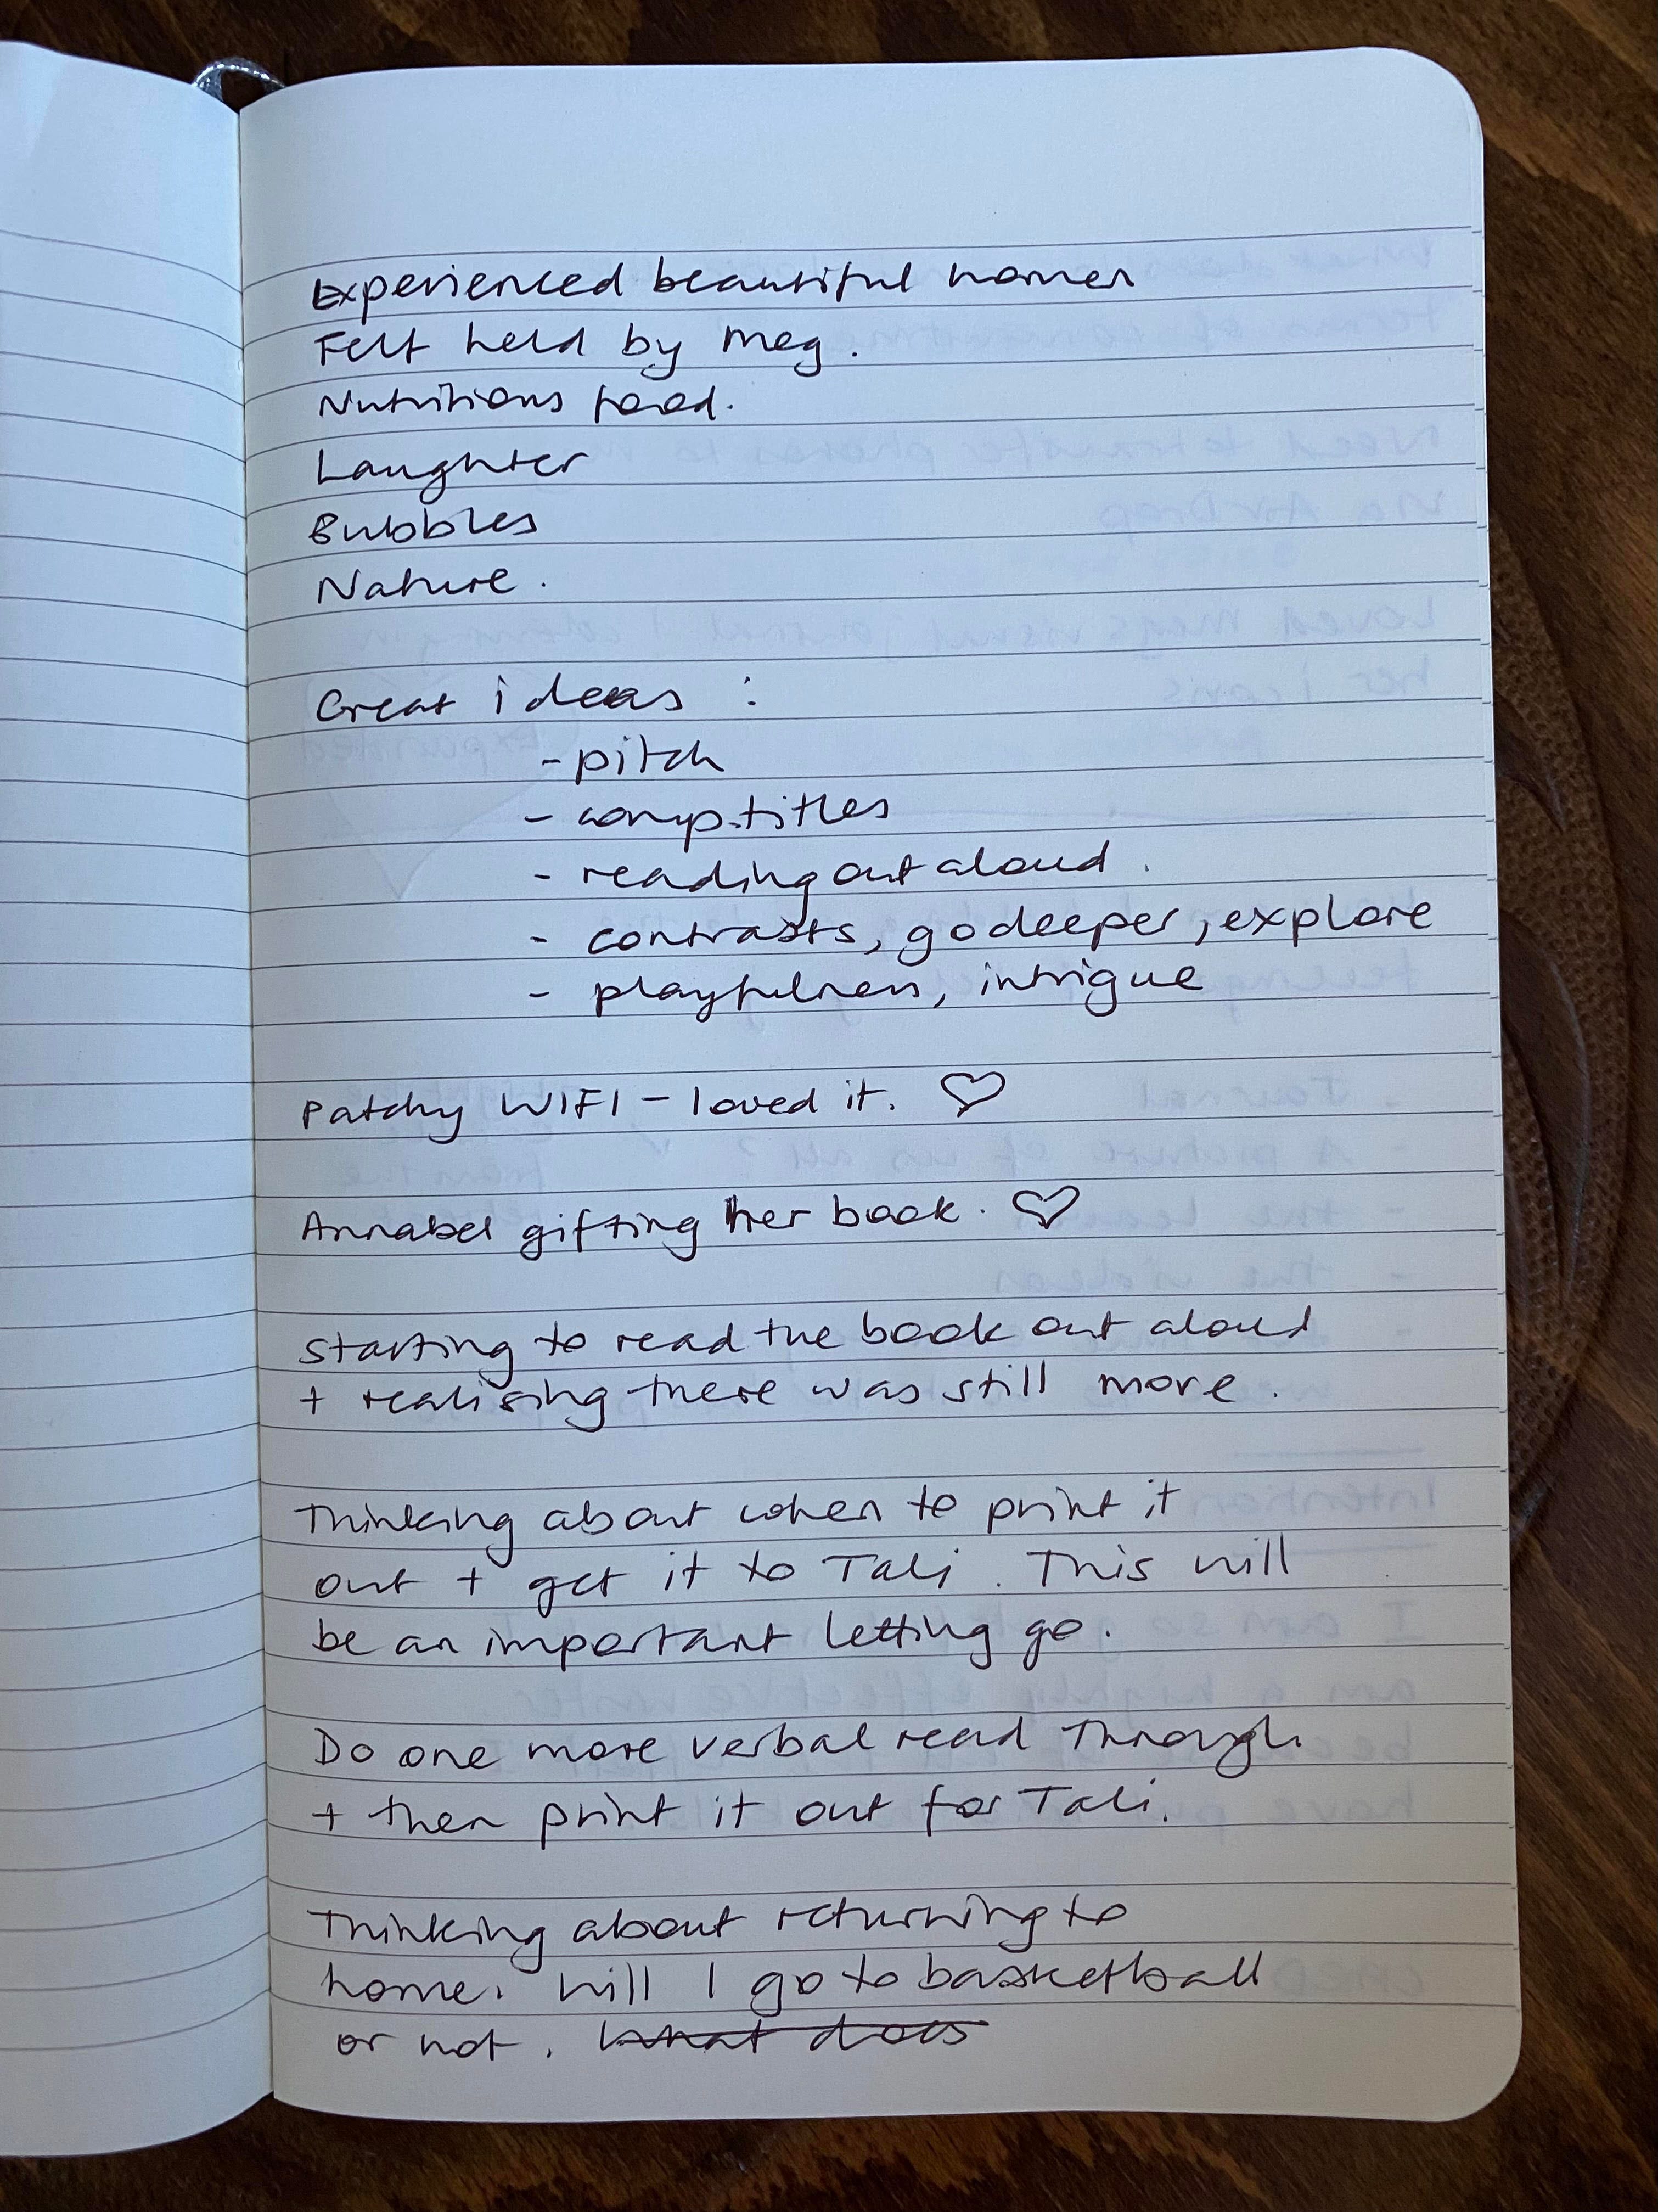 Experienced beautiful women
Felt held by Meg.
Nutritious food.
Laughter
Bubbles
Nature.
Great ideas :
- pitch
- comp. titles
- reading out aloud.
- contrasts, go deeper, explore
- playfulness, intrigue
Patchy WIFI - loved it. ♡
Annabel gifting her book. ♡
Starting to read the book out aloud
+ realising there was still more.
Thinking about when to print it
out + get it to Tali. This will
be an important letting go.
Do one more verbal read through
+ then print it out for Tali.
Thinking about returning to
home. Will I go to basketball
or not. What does